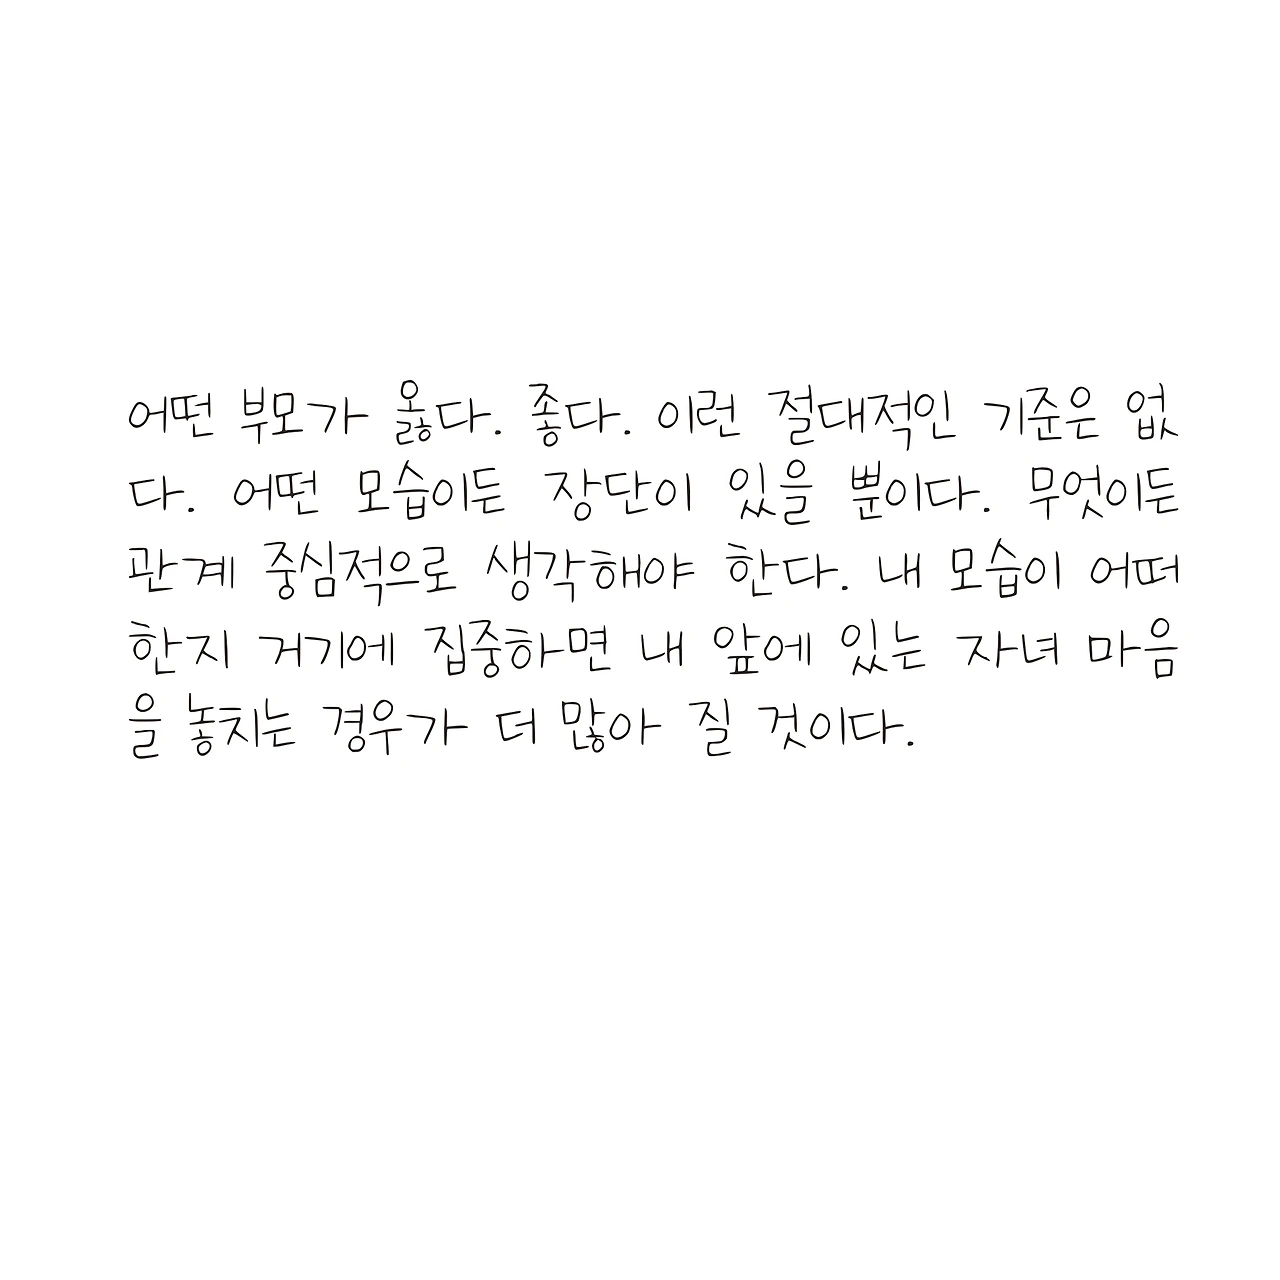 어떤 부모가 옳다. 좋다. 이런 절대적인 기준은 없
다. 어떤 모습이든 장단이 있을 뿐이다. 무엇이든
관계 중심적으로 생각해야 한다. 내 모습이 어떠
한지 거기에 집중하면 내 앞에 있는 자녀 마음
을 놓치는 경우가 더 많아 질 것이다.